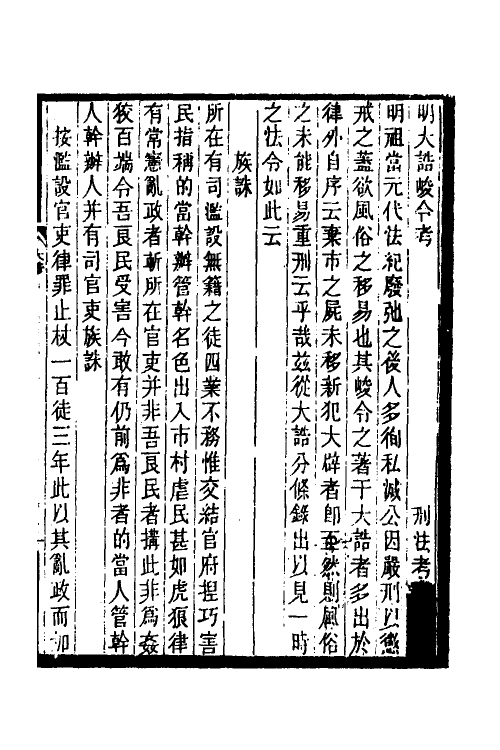 明大誥峻令考 刑法考
明祖當元代法紀廢弛之後人多徇私滅公因嚴刑以懲
戒之蓋欲風俗之移易也其峻令之著于大誥者多出於
律外自序云棄市之屍未移新犯大辟者卽至然則風俗
之未能移易重刑云乎哉茲從大誥分條錄出以見一時
之法令如此云
族誅
所在有司濫設無籍之徒四業不務惟交結官府捏巧害
民指稱的當幹辦管幹名色出入市村虐民甚如虎狼律
有常憲亂政者斬所在官吏并非吾良民者搆此非爲姦
狡百端令吾良民受害今敢有仍前爲非者的當人管幹
人幹辦人并有司官吏族誅
按濫設官吏律罪止杖一百徒三年此以其亂政而加